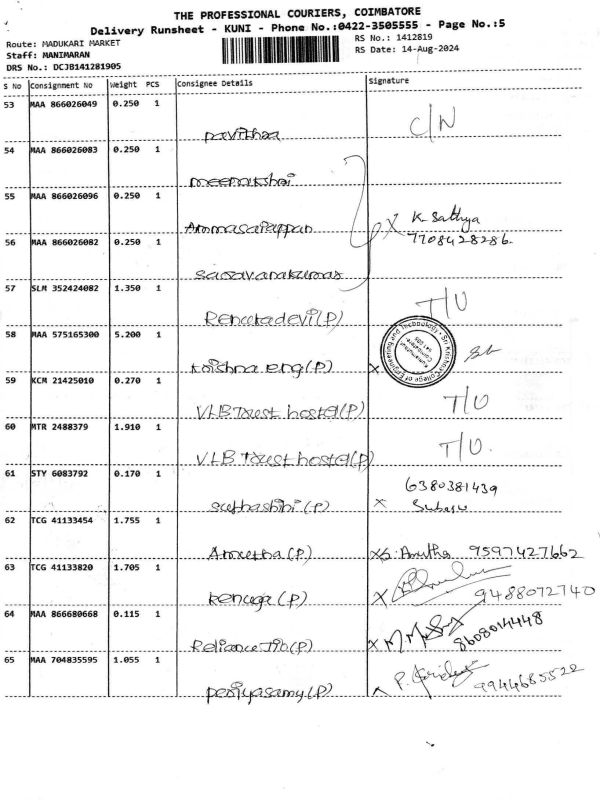 THE PROFESSIONAL COURIERS, COIMBATORE
Delivery Runsheet - KUNI - Phone No.:0422-3505555 - Page No.:5
Route: MADUKARI MARKET
RS No.: 1412819
Staff: MANIMARAN
RS Date: 14-Aug-2024
DRS No.: DCJB141281905
S No Consignment No Weight PCS Consignee Details Signature
53 MAA 866026049 0.250 1
pavithaa C/N
54 MAA 866026083 0.250 1
meenakshi
55 MAA 866026096 0.250 1
Ammasaiappan X K. Sathya
7708428286.
56 MAA 866026082 0.250 1
saravanakumar
57 SLM 352424082 1.350 1
Renukadevi(P) T/U
58 MAA 575165300 5.200 1
Sri Krishna College of Engineering and Technology
Kuniamuthur
Coimbatore
641 008
krishna eng(P) X
59 KCM 21425010 0.270 1
VLB Trust hostel(P) T/U
60 MTR 2488379 1.910 1
VLB Trust hostel(P) T/U.
61 STY 6083792 0.170 1
6380381439
suthashini(P) X
62 TCG 41133454 1.755 1
Amutha(P) X S. Amutha 9597427662
63 TCG 41133820 1.705 1
Renuga(P) X 9488072740
64 MAA 866680668 0.115 1
Reliance Jio(P) X 8608014448
65 MAA 704835595 1.055 1
periyasamy(P) P. 9944685522